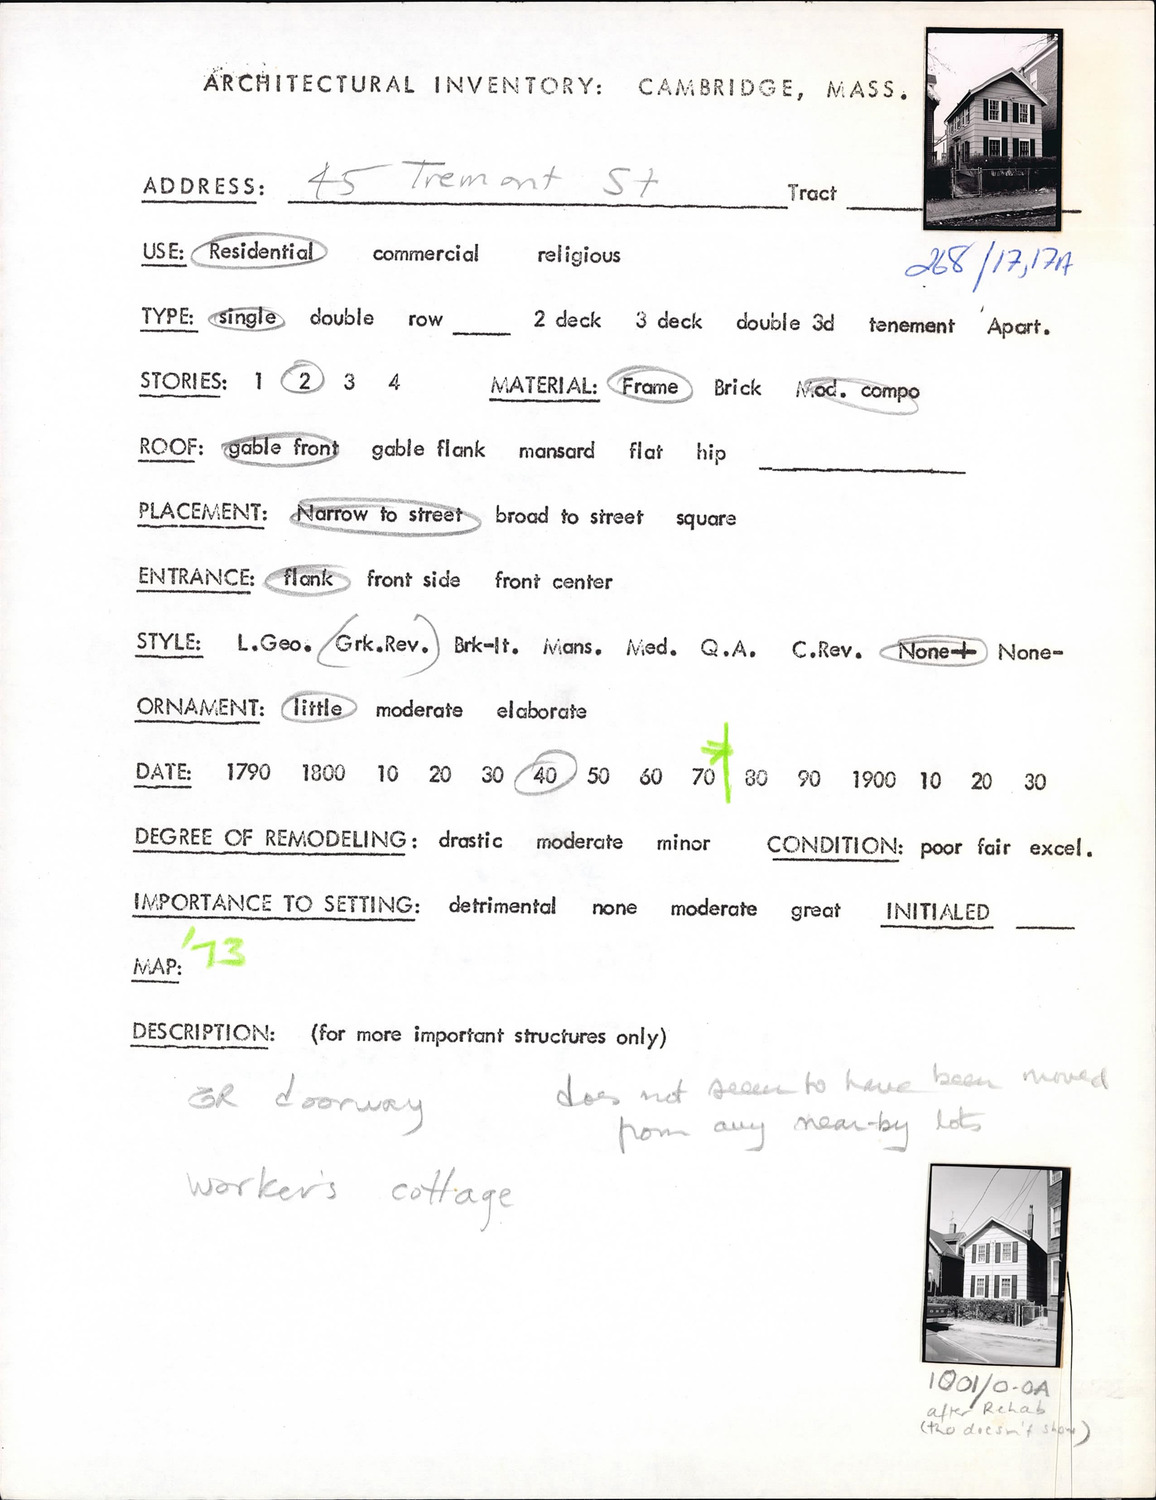 ARCHITECTURAL INVENTORY: CAMBRIDGE, MASS.
ADDRESS: 45 Tremont St Tract
268/17,17A
USE: Residential commercial religious
TYPE: single double row ____ 2 deck 3 deck double 3d tenement Apart.
STORIES: 1 2 3 4 MATERIAL: Frame Brick Mod. compo
ROOF: gable front gable flank mansard flat hip
PLACEMENT: Narrow to street broad to street square
ENTRANCE: flank front side front center
STYLE: L.Geo. (Grk.Rev.) Brk-It. Mans. Med. Q.A. C.Rev. None+ None-
ORNAMENT: little moderate elaborate
DATE: 1790 1800 10 20 30 40 50 60 70 80 90 1900 10 20 30
DEGREE OF REMODELING: drastic moderate minor CONDITION: poor fair excel.
IMPORTANCE TO SETTING: detrimental none moderate great INITIALED ____
MAP: '73
DESCRIPTION: (for more important structures only)
GR doorway does not seem to have been moved
from any near-by lots
worker's cottage
1001/0-0A
after Rehab
(tho doesn't show)